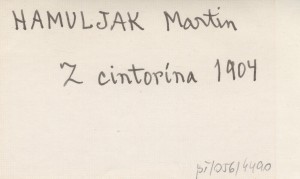 HAMULJAK Martin
Z cintorína 1904
pí/056/4490